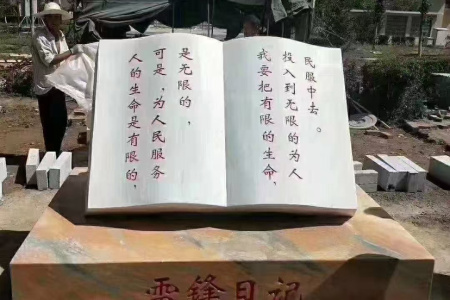 人的生命是有限的，
可是，为人民服务
是无限的，
我要把有限的生命，
投入到无限的为人
民服中去。
雷锋日记